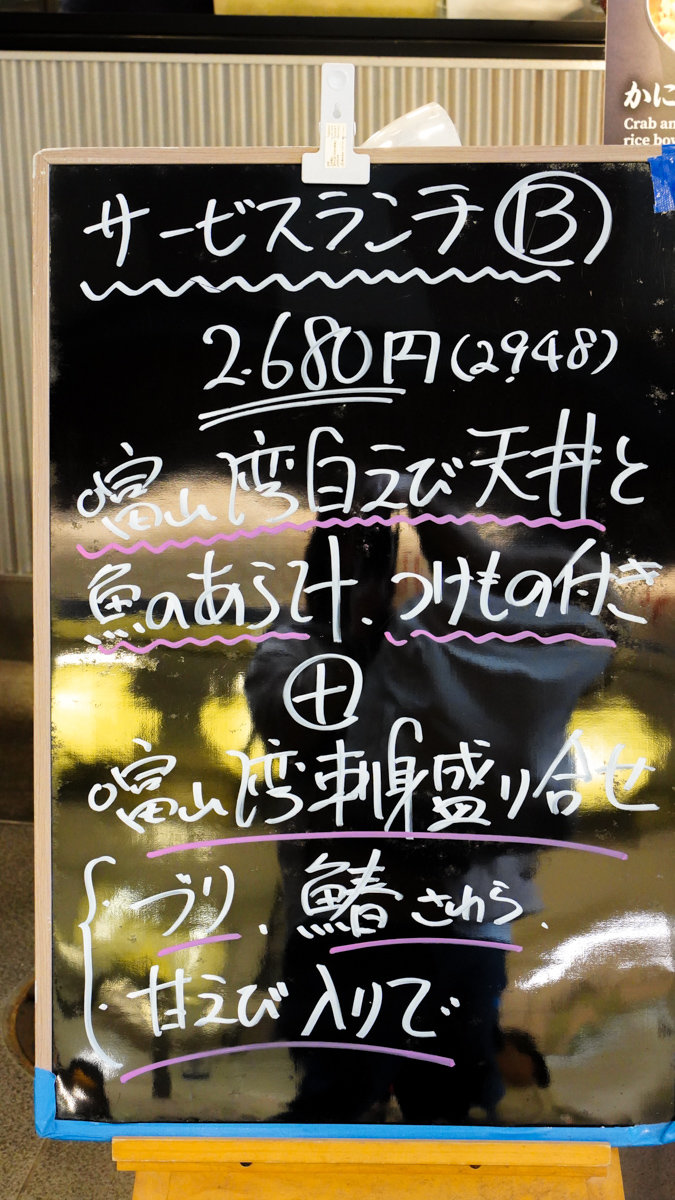 かに
Crab an
rice bow
サービスランチⒷ
2.680円(2,948)
富山湾白えび天丼と
魚のあら汁、つけもの付き
⊕
富山湾刺身盛り合せ
・ブリ、鰆さわら、
・甘えび入りで